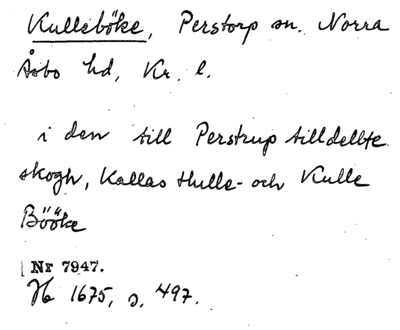 Kulleböke, Perstorp sn. Norra
Åsbo hd, Kr. l.
i den till Perstrup tilldelbte
skogh, Kallas Hulle- och Kulle
Bööke
Nr 7947.
1675, s. 497.